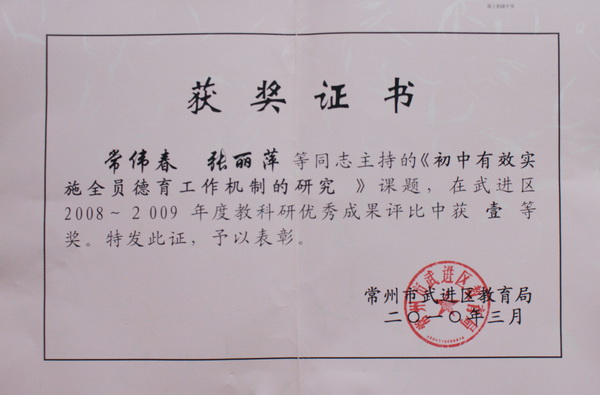 获奖证书
常伟春 张丽萍等同志主持的《初中有效实
施全员德育工作机制的研究 》课题，在武进区
2008～2009年度教科研优秀成果评比中获 壹 等
奖。特发此证，予以表彰。
常州市武进区教育局
二〇一〇年三月
常州市武进区教育局